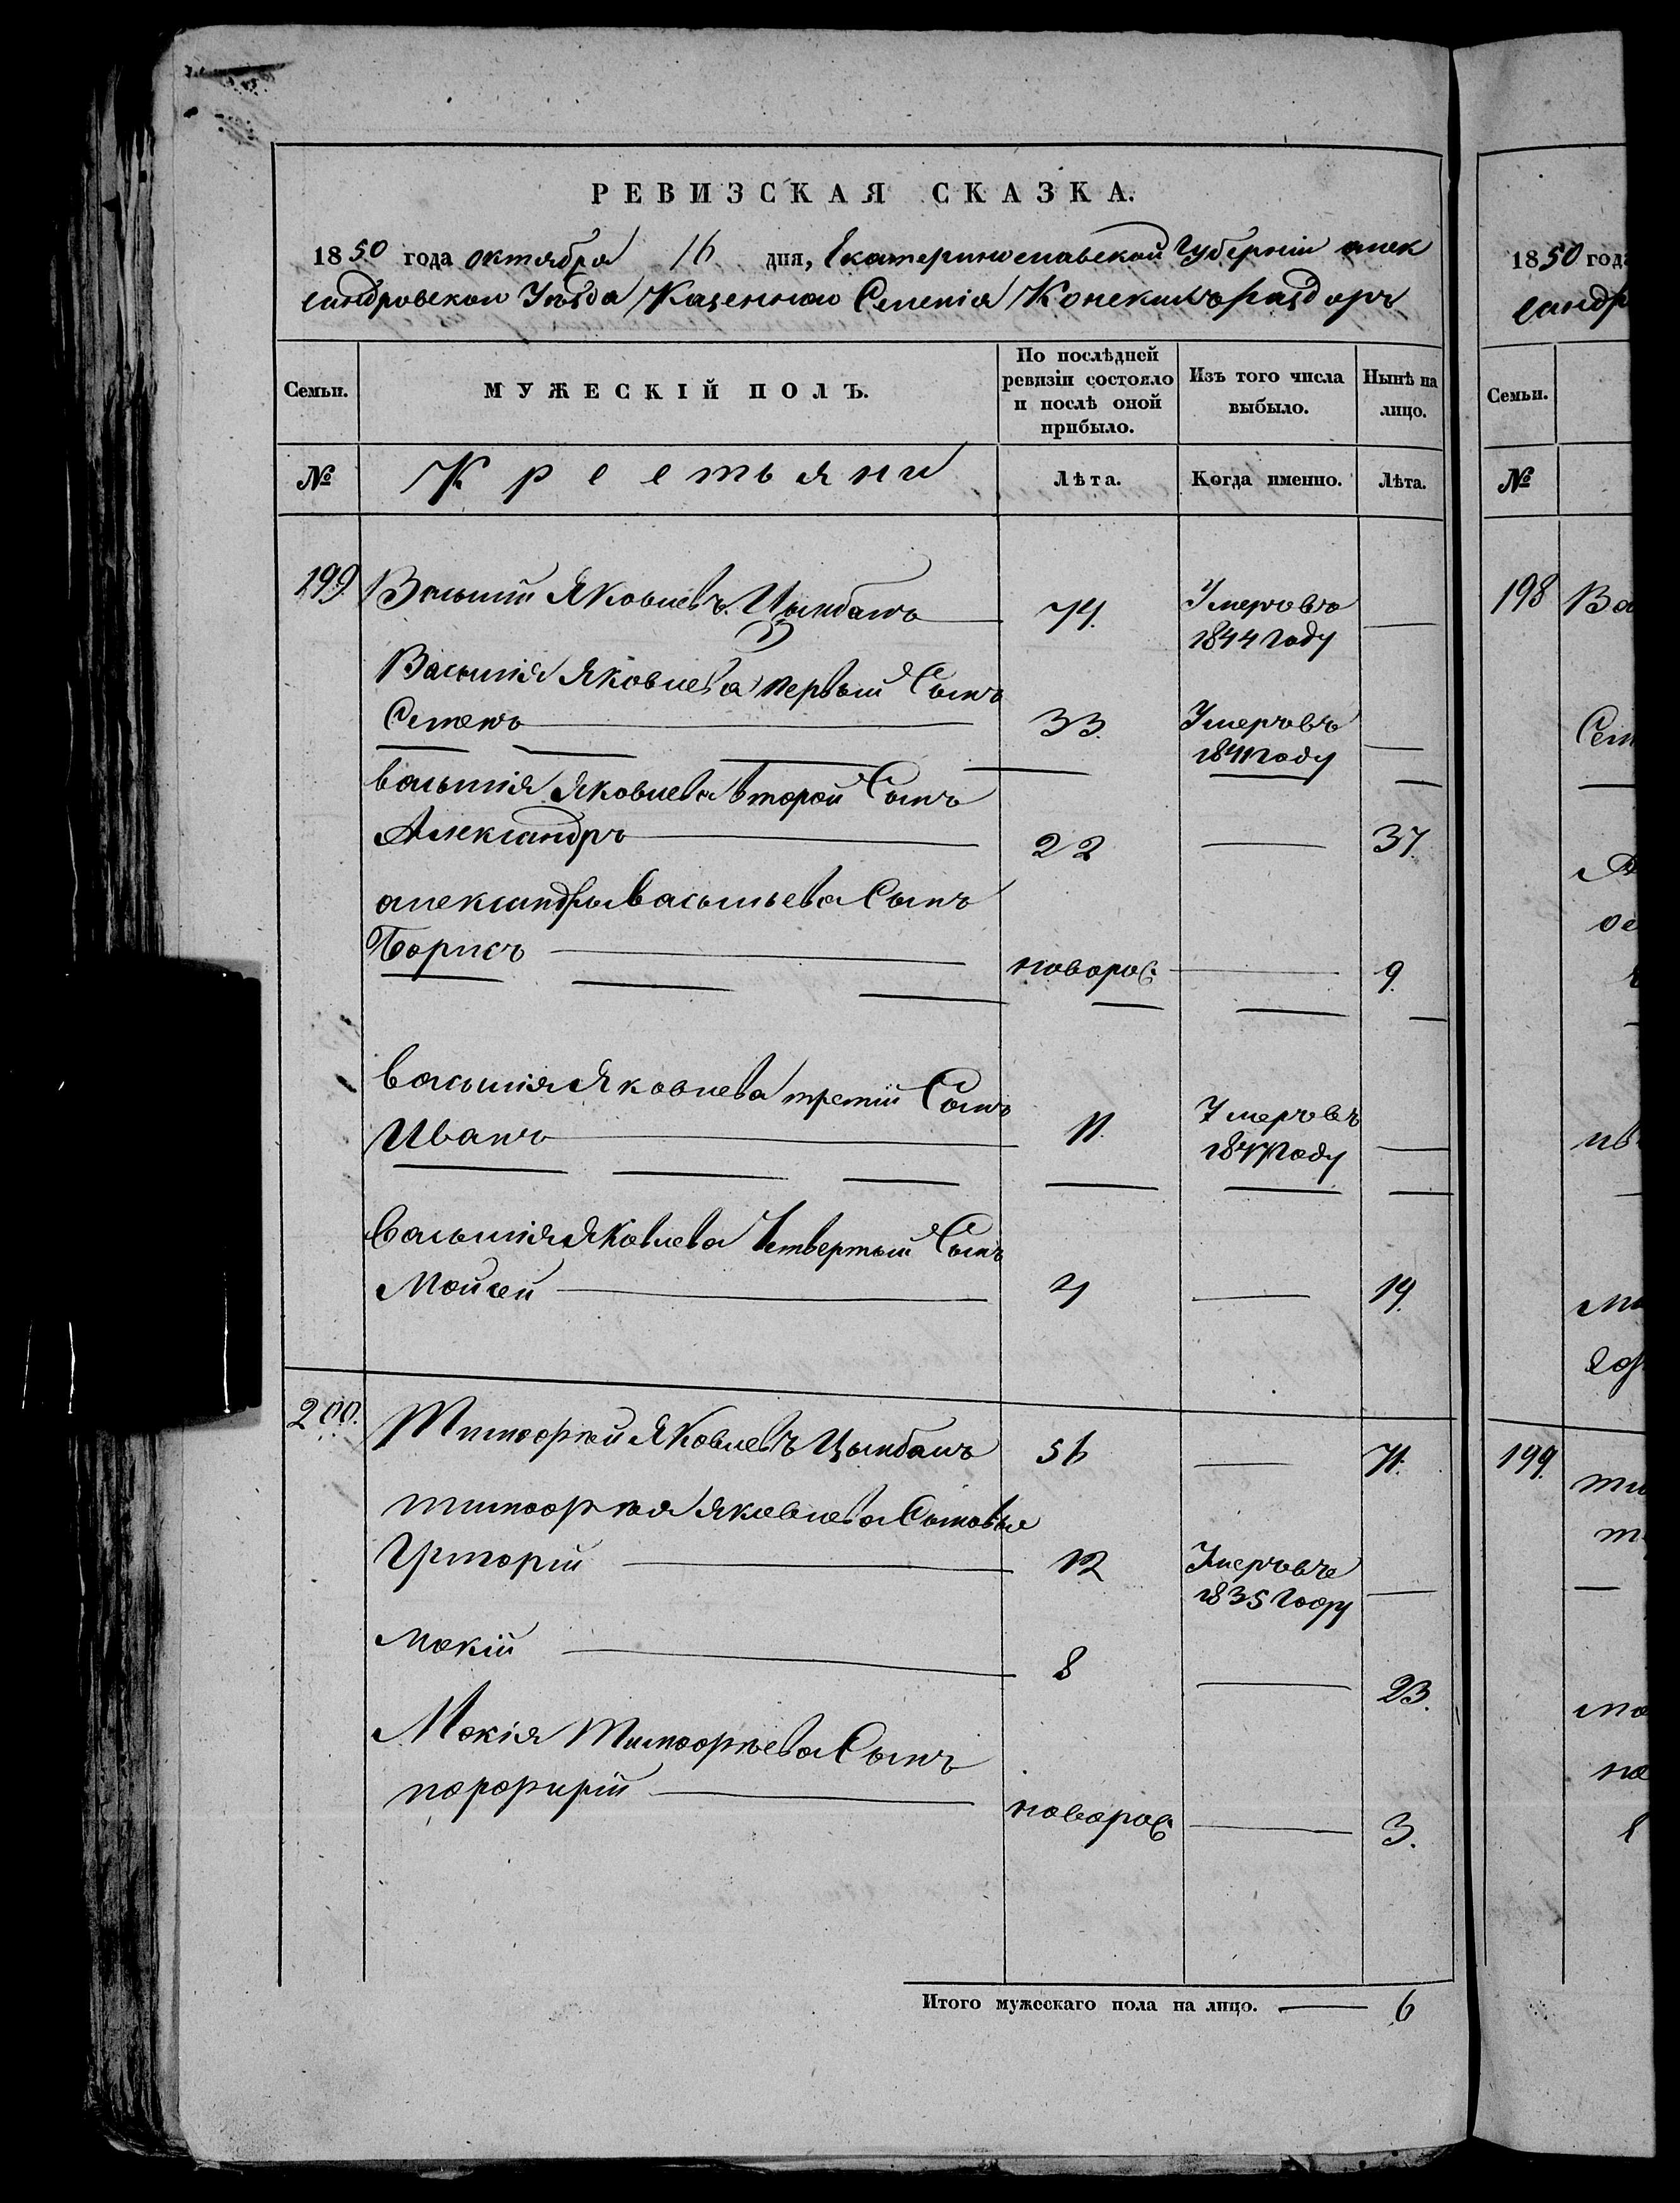 РЕВИЗСКАЯ СКАЗКА.
1850 года октября 16 дня, Екатеринославской Губерніи алек
сандровскои Уѣзда Казенного Селенія Конскихъ раздоръ
Семьи. МУЖЕСКІЙ ПОЛЪ. По послѣдней ревизіи состояло и послѣ оной прибыло. Изъ того числа выбыло. Нынѣ на лицо.
№ Крестьяни Лѣта. Когда именно. Лѣта.
199 Василій Яковлевъ Цымбалъ 74. Умеръ въ
1844 году —
Василия Яковлева первый Сынъ
Семенъ 33. Умеръ въ
1841 году —
василия Яковлева второй Сынъ
Александръ 22 — 37.
александра васильева Сынъ
Борисъ новорож — 9.
василия Яковлева третій Сынъ
Иванъ 11. Умеръ въ
году —
василия Яковлева Четвертый Сынъ
Мойсей 4 — 19.
200. Тимофей Яковлевъ Цымбалъ 56 — 71.
тимофея яковлева Сыновья
Григорій 12 Умеръ въ
1835 году —
Мокій 8 — 23.
Мокія Тимофеева Сынъ
порфирій новорож — 3.
Итого мужескаго пола на лицо. — 6
1850 года
сандр
Семьи.
№
198 Ва
Сем
199. ти